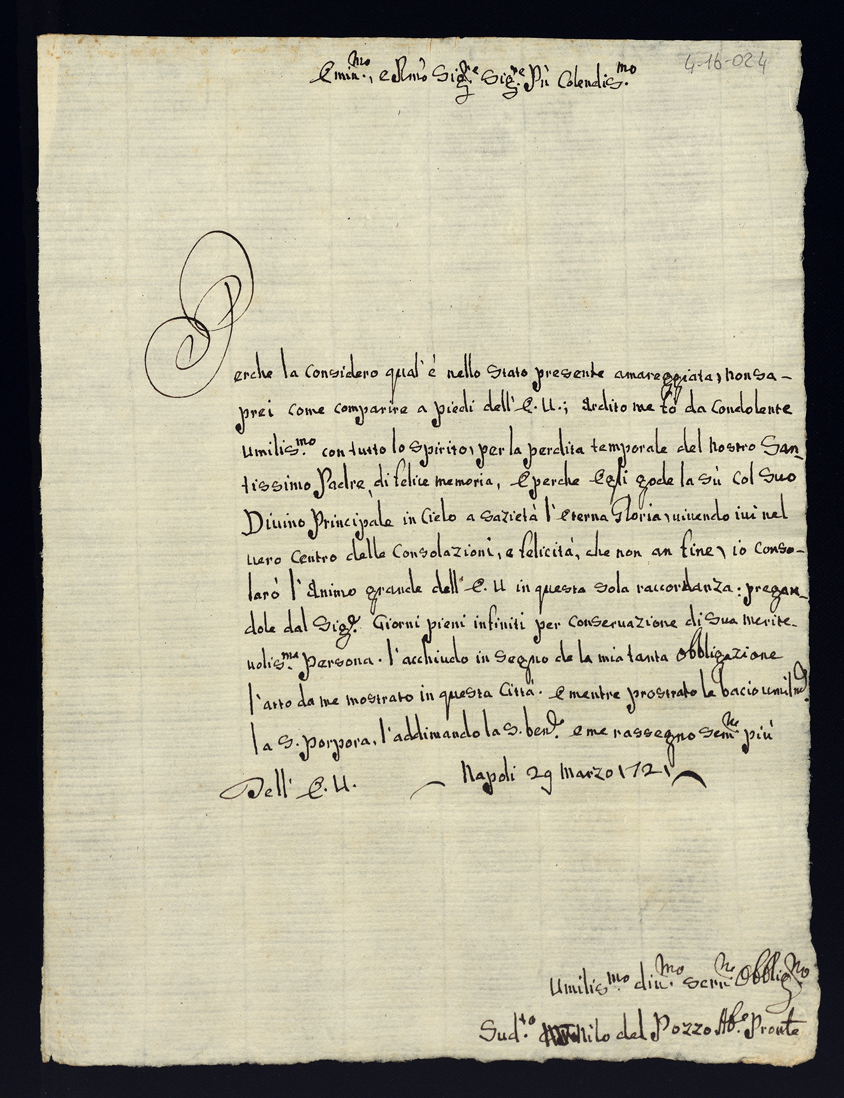 4-16-024
Emin.mo, e Rmo Sig.re Sig.re Pñ Colendis.mo
Perche la considero qual'è nello stato presente amareggiata, non sa-
prei come comparire a piedi dell'E.V.; ardito me fò da Condolente
umilis.mo con tutto lo spirito, per la perdita temporale del nostro San-
tissimo Padre, di felice memoria, E perche Egli gode la sù col suo
Divino Principale in Cielo a sazietà l'eterna Gloria, uiuendo iui nel
uero Centro delle Consolazioni, e felicità, che non an fine, io conso-
larò l'Animo grande dell'E.V in questa sola raccordanza: pregan-
dole dal Sig.e Giorni pieni infiniti per conseruazione di sua merite-
uolis.ma persona. l'acchiudo in segno de la mia tanta obbligazione
l'atto da me mostrato in questa Città. E mentre prostrato le bacio umilm.e
la S. porpora, l'addimando la S. ben.e e me rassegno sem.e più
Dell'E.V. Napoli 29 Marzo 1721
Umilis.mo diu.mo seru.re Obblig.mo
Sud.to Nilo del Pozzo Ab.e